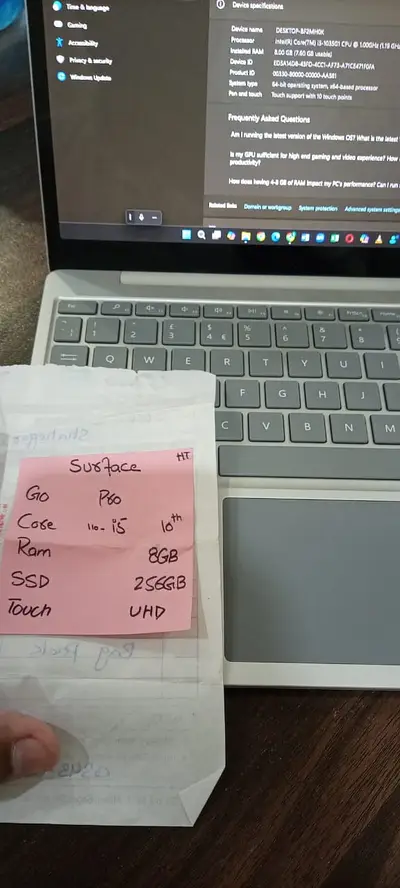 Time & language
Gaming
Accessibility
Privacy & security
Windows Update
Device specifications
Device name DESKTOP-BF2MH0K
Processor Intel(R) Core(TM) i3-1035G1 CPU @ 1.00GHz (1.19 GHz
Installed RAM 8.00 GB (7.60 GB usable)
Device ID
Product ID 00330-80000-00000-AA581
System type 64-bit operating system, x64-based processor
Pen and touch Touch support with 10 touch points
Frequently Asked Questions
Am I running the latest version of the Windows OS? What is the latest
Is my GPU sufficient for high end gaming and video experience? How
productivity?
How does having 4-8 GB of RAM impact my PC's performance? Can I run
Related links Domain or workgroup System protection Advanced system settings
Esc
1 2 3 4 5 6 7 8
Q W E R T Y U I
F G H J
C V B N M
HT
Surface
Go Pro
Core i5 10th
Ram 8GB
SSD 256GB
Touch UHD